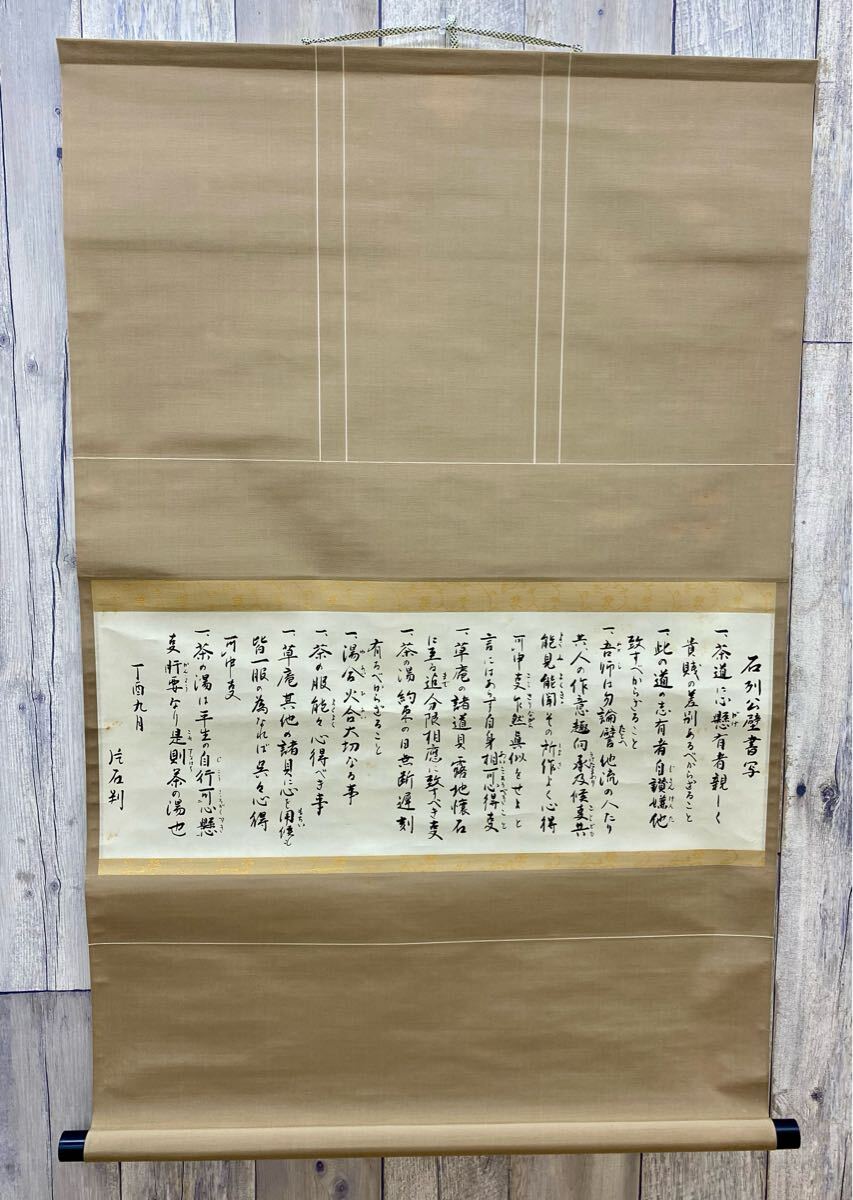 石州公壁書写
一、茶道に心懸有者親しく
貴賤の差別あるべからざること
一、此の道の志有者自讃嫌他
致すべからざること
一、吾師は勿論譬他流の人たり
共人の作意趣向承及候事其
能見能聞その所作よく心得
可申事乍然真似をせよと
言にはあらず自身相可心得事
一、草庵の諸道具露地懐石
に至る迄分限相應に致すべき事
一、茶の湯約束の日無断遅刻
有るべからざること
一、湯合火合大切なる事
一、茶の服能々心得べき事
一、草庵其他の諸具に心を用候も
皆一服の為なれば呉々心得
可申事
一、茶の湯は平生の自行可心懸
事肝要なり是則茶の湯也
丁酉九月
片石判